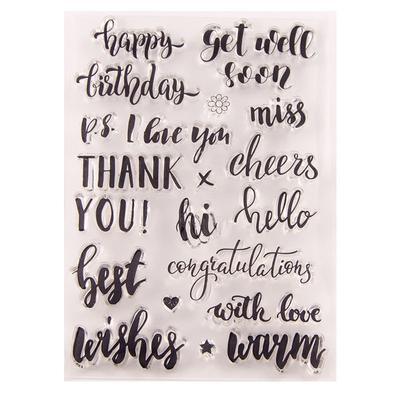 happy
birthday
get well
soon
miss
p.s. I love you
THANK x
YOU!
cheers
hi
hello
best
wishes
congratulations
with love
warm